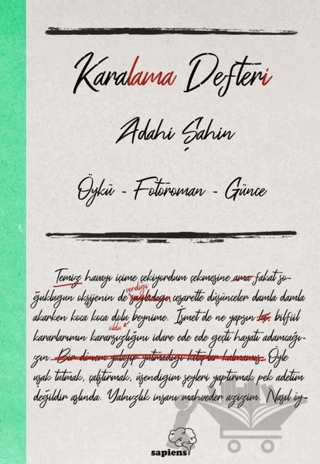 Karalama Defteri
Adahi Şahin
Öykü - Fotoroman - Günce
Temiz havayı içime çekiyordum çekmesine ama fakat so-
verdiği
ğukluğun oksijenin de cesarette düşünceler damla damla
akarken koca koca dolu beynime. İsmet de ne yapsın bilfiil
oldu
kararlarımın kararsızlığını idare ede ede geçti hayatı adamcağı-
zın. Bir dönem yatağıp yatmadığı kitaplar kalmamış. Öyle
uşak tutmak, çalıştırmak, üşendiğim şeyleri yaptırmak pek adetim
değildir aslında. Yalnızlık insanı mahveder azizim. Nasıl iy-
sapiens